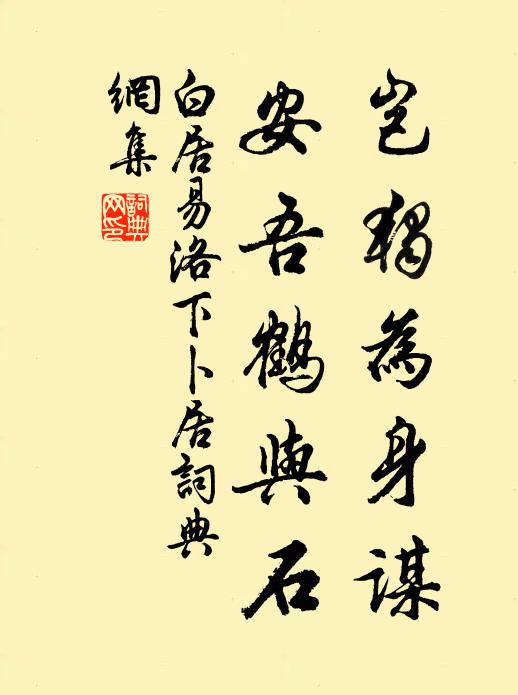 豈獨為身謀
安吾鶴與石
白居易洛下卜居詞典
網集
詞典
网印